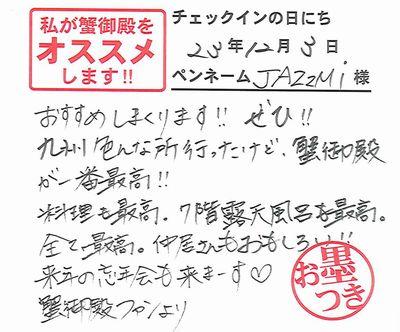 私が蟹御殿を
オススメ
します!!
チェックインの日にち
23年12月3日
ペンネーム JAZzMi 様
おすすめしまくります!! ぜひ!!
九州色んな所行ったけど、蟹御殿
が一番最高!!
料理も最高。7階露天風呂も最高。
全て最高。仲居さんもおもしろい!!
来年の忘年会も来まーす♡
蟹御殿ファンより
お墨つき